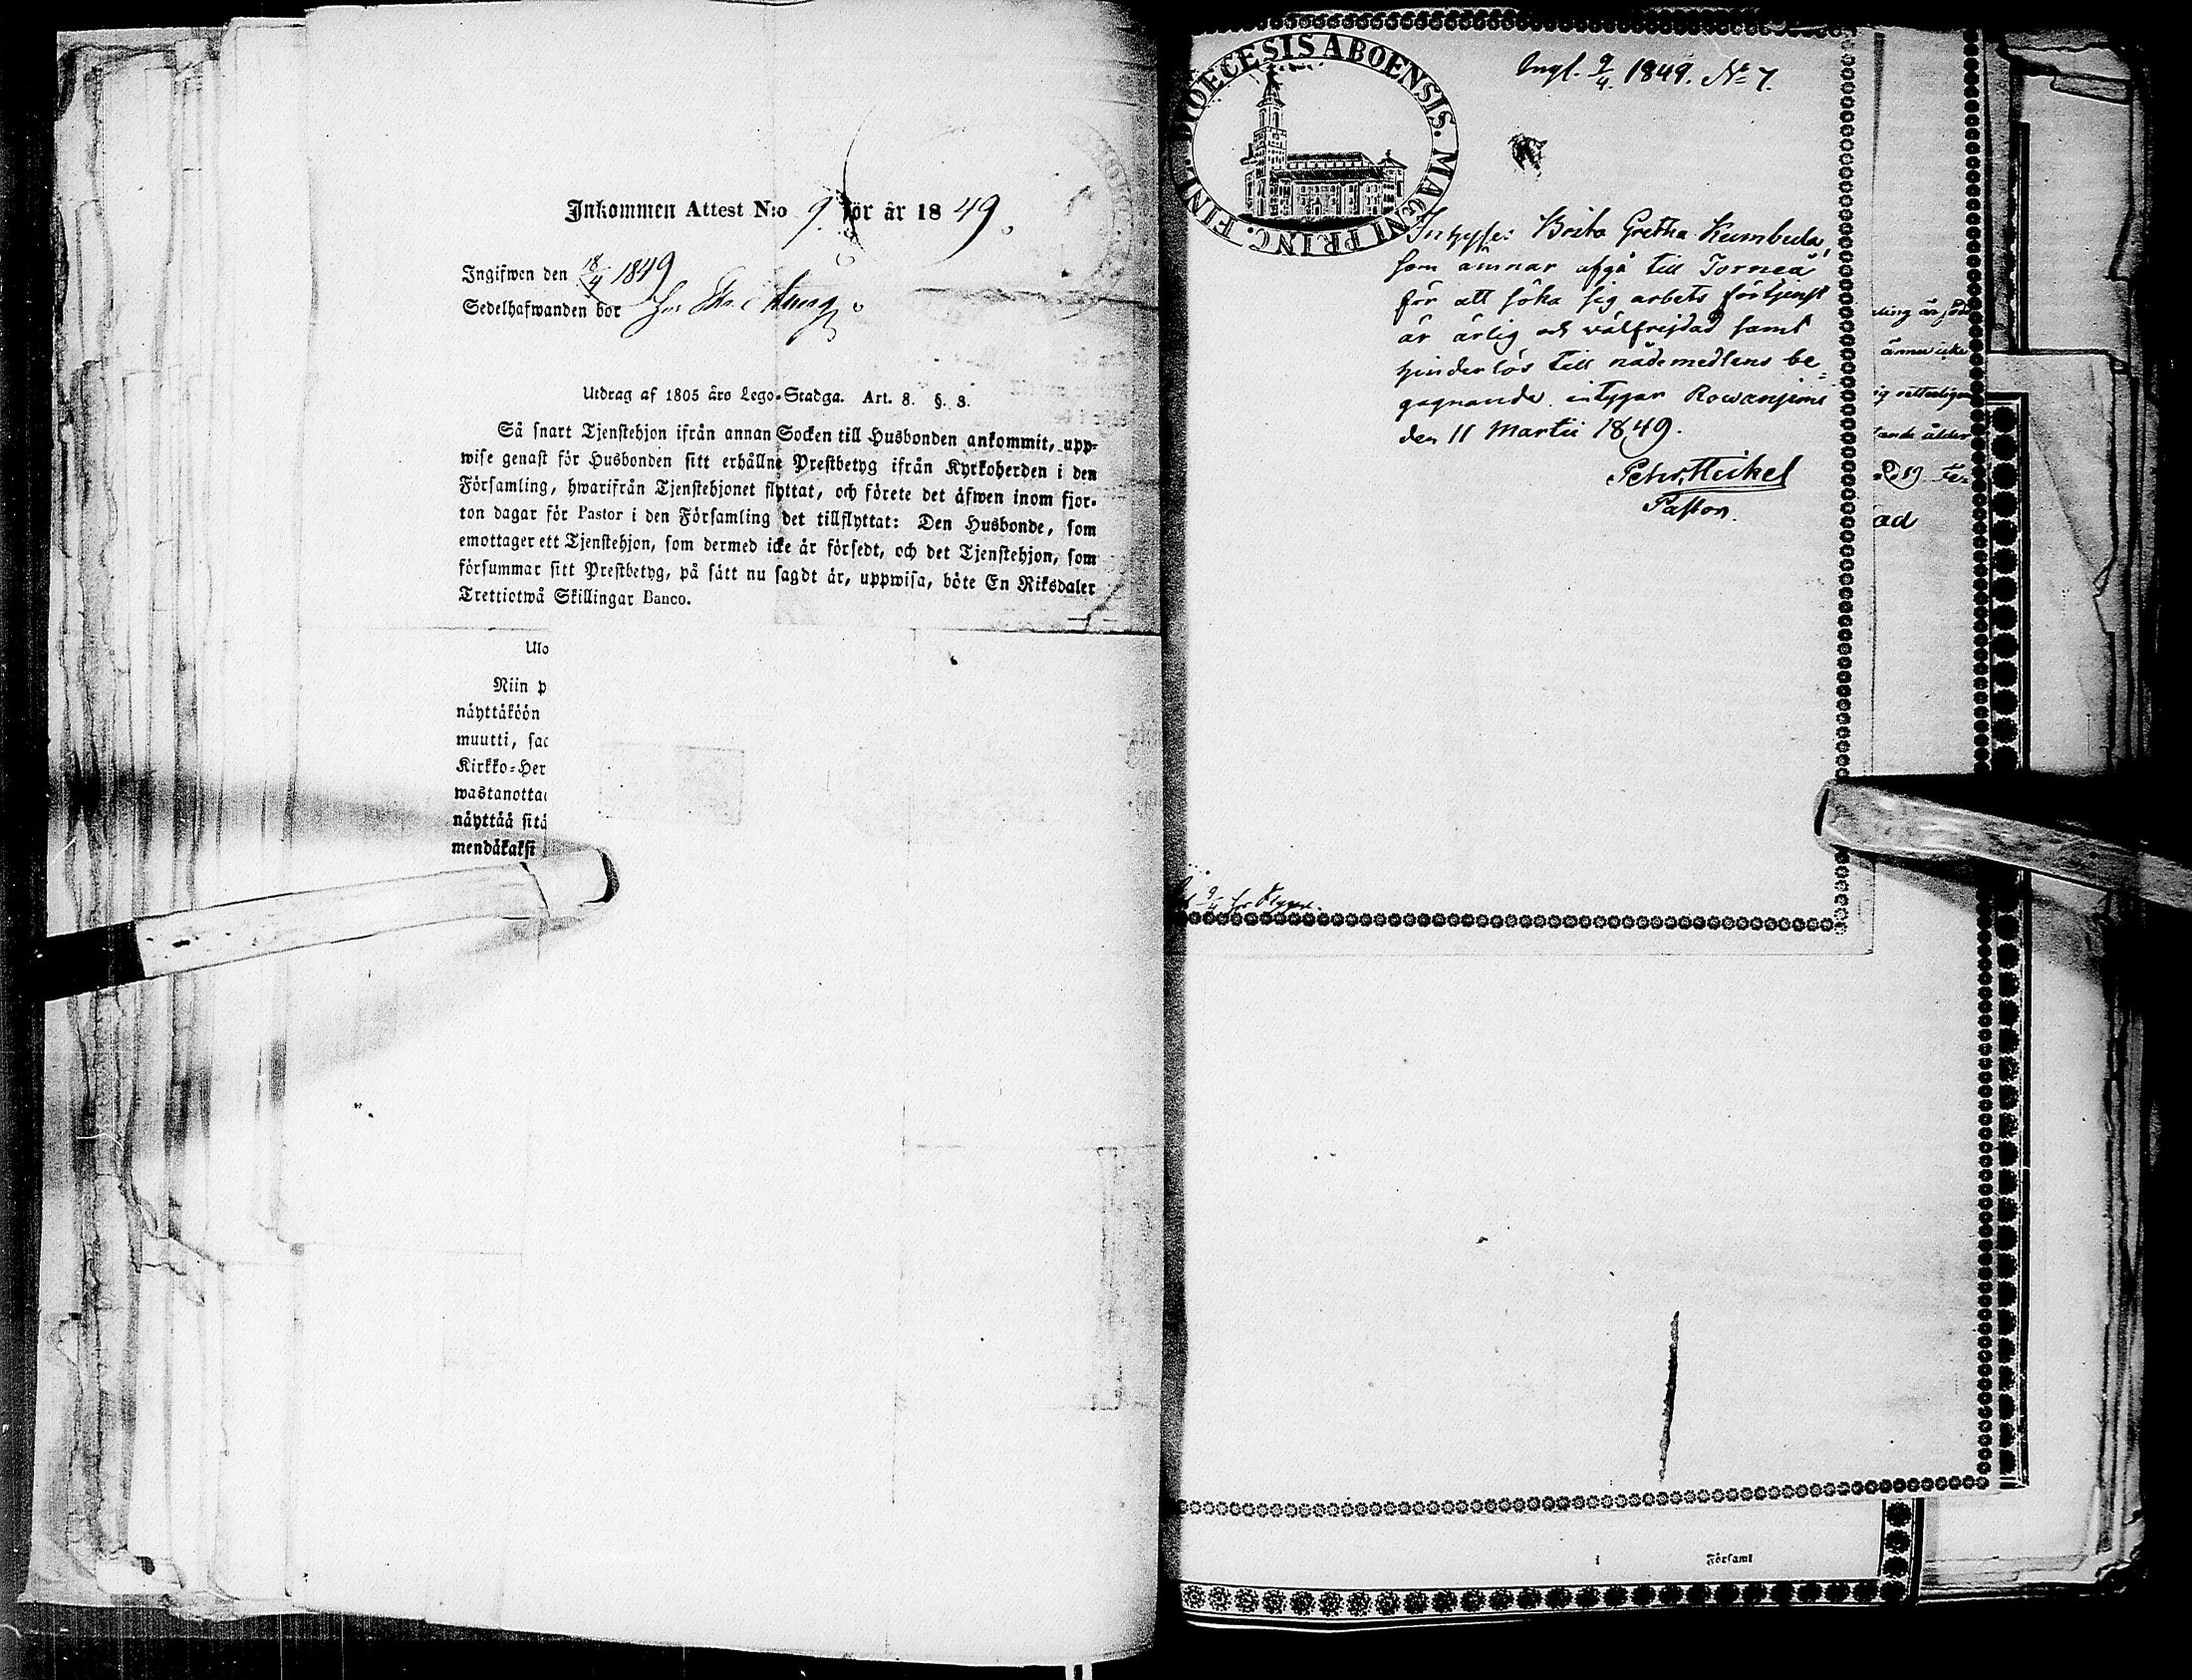 Inkommen Attest N:o 9. för år 1849.
Ingifwen den 18/4 1849
Sedelhafwanden bor hos
Utdrag af 1805 års Lego-Stadga. Art. 8. §. 8.
Så snart Tjenstehjon ifrån annan Socken till Husbonden ankommit, upp-
wise genast för Husbonden sitt erhållne Prestbetyg ifrån Kyrkoherden i den
Församling, hwarifrån Tjenstehjonet flyttat, och förete det äfwen inom fjor-
ton dagar för Pastor i den Församling det tillflyttat: Den Husbonde, som
emottager ett Tjenstehjon, som dermed icke är försedt, och det Tjenstehjon, som
försummar sitt Prestbetyg, på sätt nu sagdt är, uppwisa, böte En Riksdaler
Trettiotwå Skillingar Banco.
Ulo
Niin p
näyttäköön
muutti, sac
Kirkko-Her
wastanotta
näyttää sitä
mendäkaksi
DIOECESIS ABOENSIS. MAGNI PRINC. FINL.
Ingl. 9/4. 1849. No 7.
Brita Gretha
som ämnar afgå till Torneå
för att söka sig arbets förtjenst
är ärlig och välfrejdad samt
hinderlös till nådemedlens be-
gagnande, intygar Rowanjemi
den 11 Martii 1849.
Petr. Heikel
Pastor.
9/4 hos
ling är
ännu icke
ålder
ad
i Församl